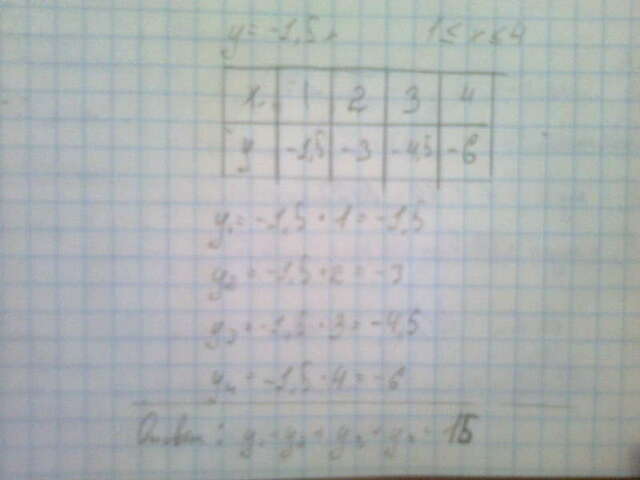 y = -1,5x 1 ≤ x ≤ 4
x 1 2 3 4
y -1,5 -3 -4,5 -6
y₁ = -1,5 · 1 = -1,5
y₂ = -1,5 · 2 = -3
y₃ = -1,5 · 3 = -4,5
y₄ = -1,5 · 4 = -6
Ответ: 15